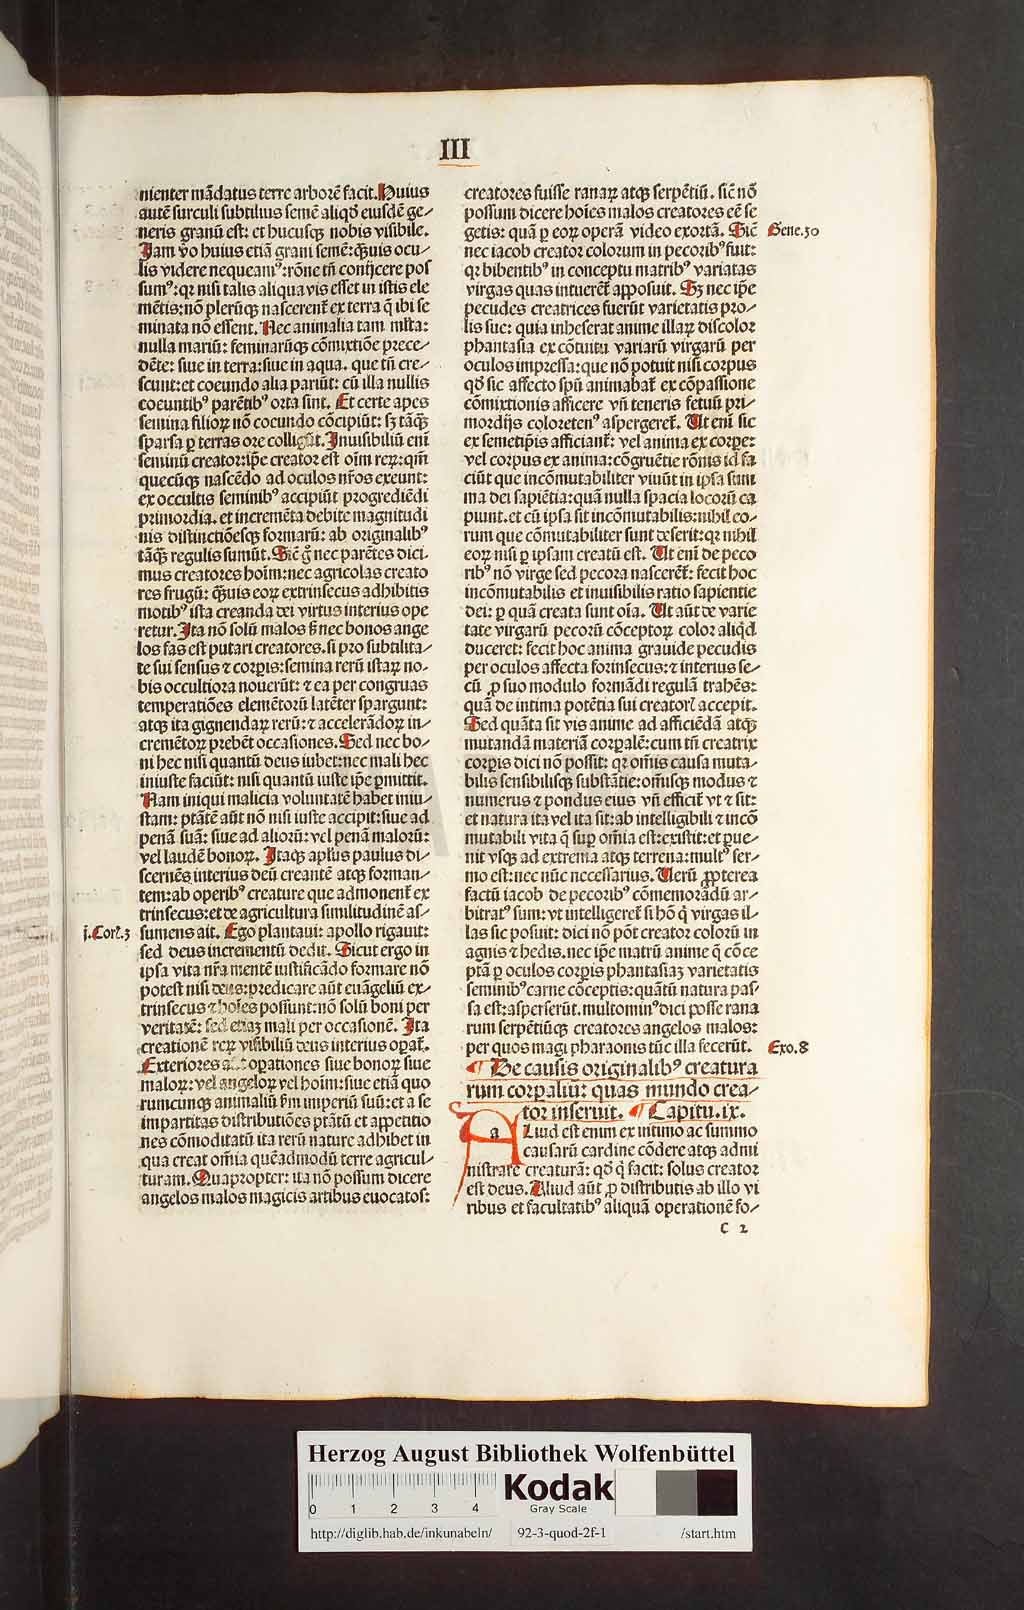 III
nienter mādatus terre arborē facit. Huius
autē surculi subtilius semē aliqđ eiusdē ge⸗
neris granū est: et hucusqꝫ nobis visibile.
Jam v̄o huius etiā grani semē: q̄uis ocu⸗
lis videre nequeamꝰ: rōne tn̄ conijcere pos
sumꝰ: qꝛ nisi talis aliqua vis esset in istis ele
mētis: nō plerūqꝫ nascerent᷑ ex terra q̄ ibi se
minata nō essent. Nec animalia tam mīta:
nulla mariū: feminarūqꝫ cōmixtiōe prece⸗
dēte: siue in terra: siue in aqua. que tn̄ cre⸗
scunt: et coeundo alia pariūt: cū illa nullis
coeuntibꝰ parētibꝰ orta sint. Et certe apes
semina filioꝝ nō coeundo cōcipiūt: sꝫ tāqꝫ
sparsa ꝑ terras ore colligūt. Inuisibiliū enī
seminū creator: ip̄e creator est oīm reꝝ: qm̄
quecūqꝫ nascēdo ad oculos nr̄os exeunt:
ex occultis seminibꝰ accipiūt progrediēdi
primordia. et incremēta debite magnitudi
nis distinctiōesqꝫ formarū: ab originalibꝰ
tāqꝫ regulis sumūt. Sic̄ g̊ nec parētes dici
mus creatores hoīm: nec agricolas creato
res frugū: q̄uis eoꝝ extrinsecus adhibitis
motibꝰ ista creanda dei virtus interius ope
retur. Ita nō solū malos sꝫ nec bonos ange
los fas est putari creatores. si pro subtilita⸗
te sui sensus ⁊ corpis: semina rerū istaꝝ no⸗
bis occultiora nouerūt: ⁊ ea per congruas
temperatiōes elemētorū latēter spargunt:
atqꝫ ita gignendaꝝ rerū: ⁊ accelerādoꝝ in⸗
cremētoꝝ prebēt occasiones. Sed nec bo⸗
ni hec nisi quantū deus iubet: nec mali hec
iniuste faciūt: nisi quantū iuste ip̄e ꝑmittit.
Nam iniqui malicia voluntatē habet iniu⸗
stam: ptātē aūt nō nisi iuste accipit: siue ad
penā suā: siue ad aliorū: vel penā malorū:
vel laudē bonoꝝ. Itaqꝫ apl̄us paulus di⸗
scernēs interius deū creantē atqꝫ forman⸗
tem: ab operibꝰ creature que admonent᷑ ex
trinsecus: et de agricultura similitudinē as⸗
j.Cor.3
sumens ait. Ego plantaui: apollo rigauit:
sed deus incrementū dedit. Sicut ergo in
ipsa vita nr̄a mentē iustificādo formare nō
potest nisi deus: predicare aūt euāgeliū ex⸗
trinsecus ⁊ hoīes possunt: nō solū boni per
veritatē: sed etiaꝫ mali per occasionē. Ita
creationē reꝝ visibiliū deus interius opat᷑.
Exteriores opationes siue bonoꝝ siue
maloꝝ: vel angeloꝝ vel hoīm: siue etiā quo
rumcunqꝫ animaliū ẜm imperiū suū: et a se
impartitas distributiōes ptātū et appetitio
nes cōmoditatū ita rerū nature adhibet in
qua creat om̄ia quēadmodū terre agricul⸗
turam. Quapropter: ita nō possum dicere
angelos malos magicis artibus euocatos:
creatores fuisse ranaꝝ atqꝫ serpētiū. sic̄ nō
possum dicere hoīes malos creatores eē se
getis: quā ꝑ eoꝝ operā video exortā. Sic̄
Gene.30
nec iacob creator colorum in pecoribꝰ fuit:
qꝛ bibentibꝰ in conceptu matribꝰ variatas
virgas quas intuerent᷑ apposuit. Sꝫ nec ip̄e
pecudes creatrices fuerūt varietatis pro⸗
lis sue: quia inheserat anime illaꝝ discolor
phantasia ex cōtuitu variarū virgarū per
oculos impressa: que nō potuit nisi corpus
qđ sic affecto spū animabat᷑ ex cōpassione
cōmixtionis afficere vn̄ teneris fetuū pri⸗
mordijs coloretenꝰ aspergeret᷑. Ut enī sic
ex semetipsis afficiant᷑: vel anima ex corpe:
vel corpus ex anima: cōgruētie rōnis id fa
ciūt que incōmutabiliter viuūt in ipsa sum
ma dei sapiētia: quā nulla spacia locorū ca
piunt. et cū ipsa sit incōmutabilis: nihil eo⸗
rum que cōmutabiliter sunt deserit: qꝛ nihil
eoꝝ nisi ꝑ ipsam creatū est. Ut enī de peco
ribꝰ nō virge sed pecora nascerent᷑: fecit hoc
incōmutabilis et inuisibilis ratio sapientie
dei: ꝑ quā creata sunt oīa. Ut aūt de varie
tate virgarū pecorū cōceptoꝝ color aliqđ
duceret: fecit hoc anima grauide pecudis
per oculos affecta forinsecus: ⁊ interius se⸗
cū ꝓ suo modulo formādi regulā trahēs:
quā de intima potētia sui creatorꝭ accepit.
Sed quāta sit vis anime ad afficiēdā atqꝫ
mutandā materiā corpalē: cum tn̄ creatrix
corpis dici nō possit: qꝛ om̄is causa muta⸗
bilis sensibilisqꝫ substātie: om̄isqꝫ modus ⁊
numerus ⁊ pondus eius vn̄ efficit᷑ vt ⁊ sit:
et natura ita vel ita sit: ab intelligibili ⁊ incō
mutabili vita q̄ sup om̄ia est: existit: et pue⸗
nit vsqꝫ ad extrema atqꝫ terrena: multꝰ ser⸗
mo est: nec nūc necessarius. Uerū ꝓpterea
factū iacob de pecoribꝰ cōmemorādū ar⸗
bitratꝰ sum: vt intelligeret᷑ si hō q̄ virgas il⸗
las sic posuit: dici nō pōt creator colorū in
agnis ⁊ hedis. nec ip̄e matrū anime q̄ cōce
ptā ꝑ oculos corpis phantasiaꝫ varietatis
seminibꝰ carne cōceptis: quātū natura pas⸗
sa est: asperserūt. multominꝰ dici posse rana
rum serpētiūqꝫ creatores angelos malos:
per quos magi pharaonis tūc illa fecerūt.
Exo.8
¶ De causis originalibꝰ creatura
rum corpaliū: quas mundo crea⸗
tor inseruit. ¶ Capitu.ix.
aLiud est enim ex intimo ac summo
causarū cardine cōdere atqꝫ admi
nistrare creaturā: qđ q̄ facit: solus creator
est deus. Aliud aūt ꝓ distributis ab illo vi
ribus et facultatibꝰ aliquā operationē fo⸗
c 2
Herzog August Bibliothek Wolfenbüttel
0 1 2 3 4
Kodak
Gray Scale
http://diglib.hab.de/inkunabeln/ 92-3-quod-2f-1 /start.htm